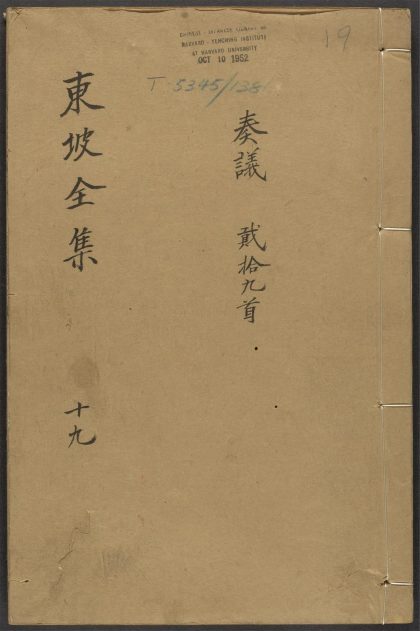 CHINESE - JAPANESE LIBRARY OF
HARVARD - YENCHING INSTITUTE
AT HARVARD UNIVERSITY
OCT 10 1952
19
T 5345/138
奏議 貳拾九首
東坡全集
十九